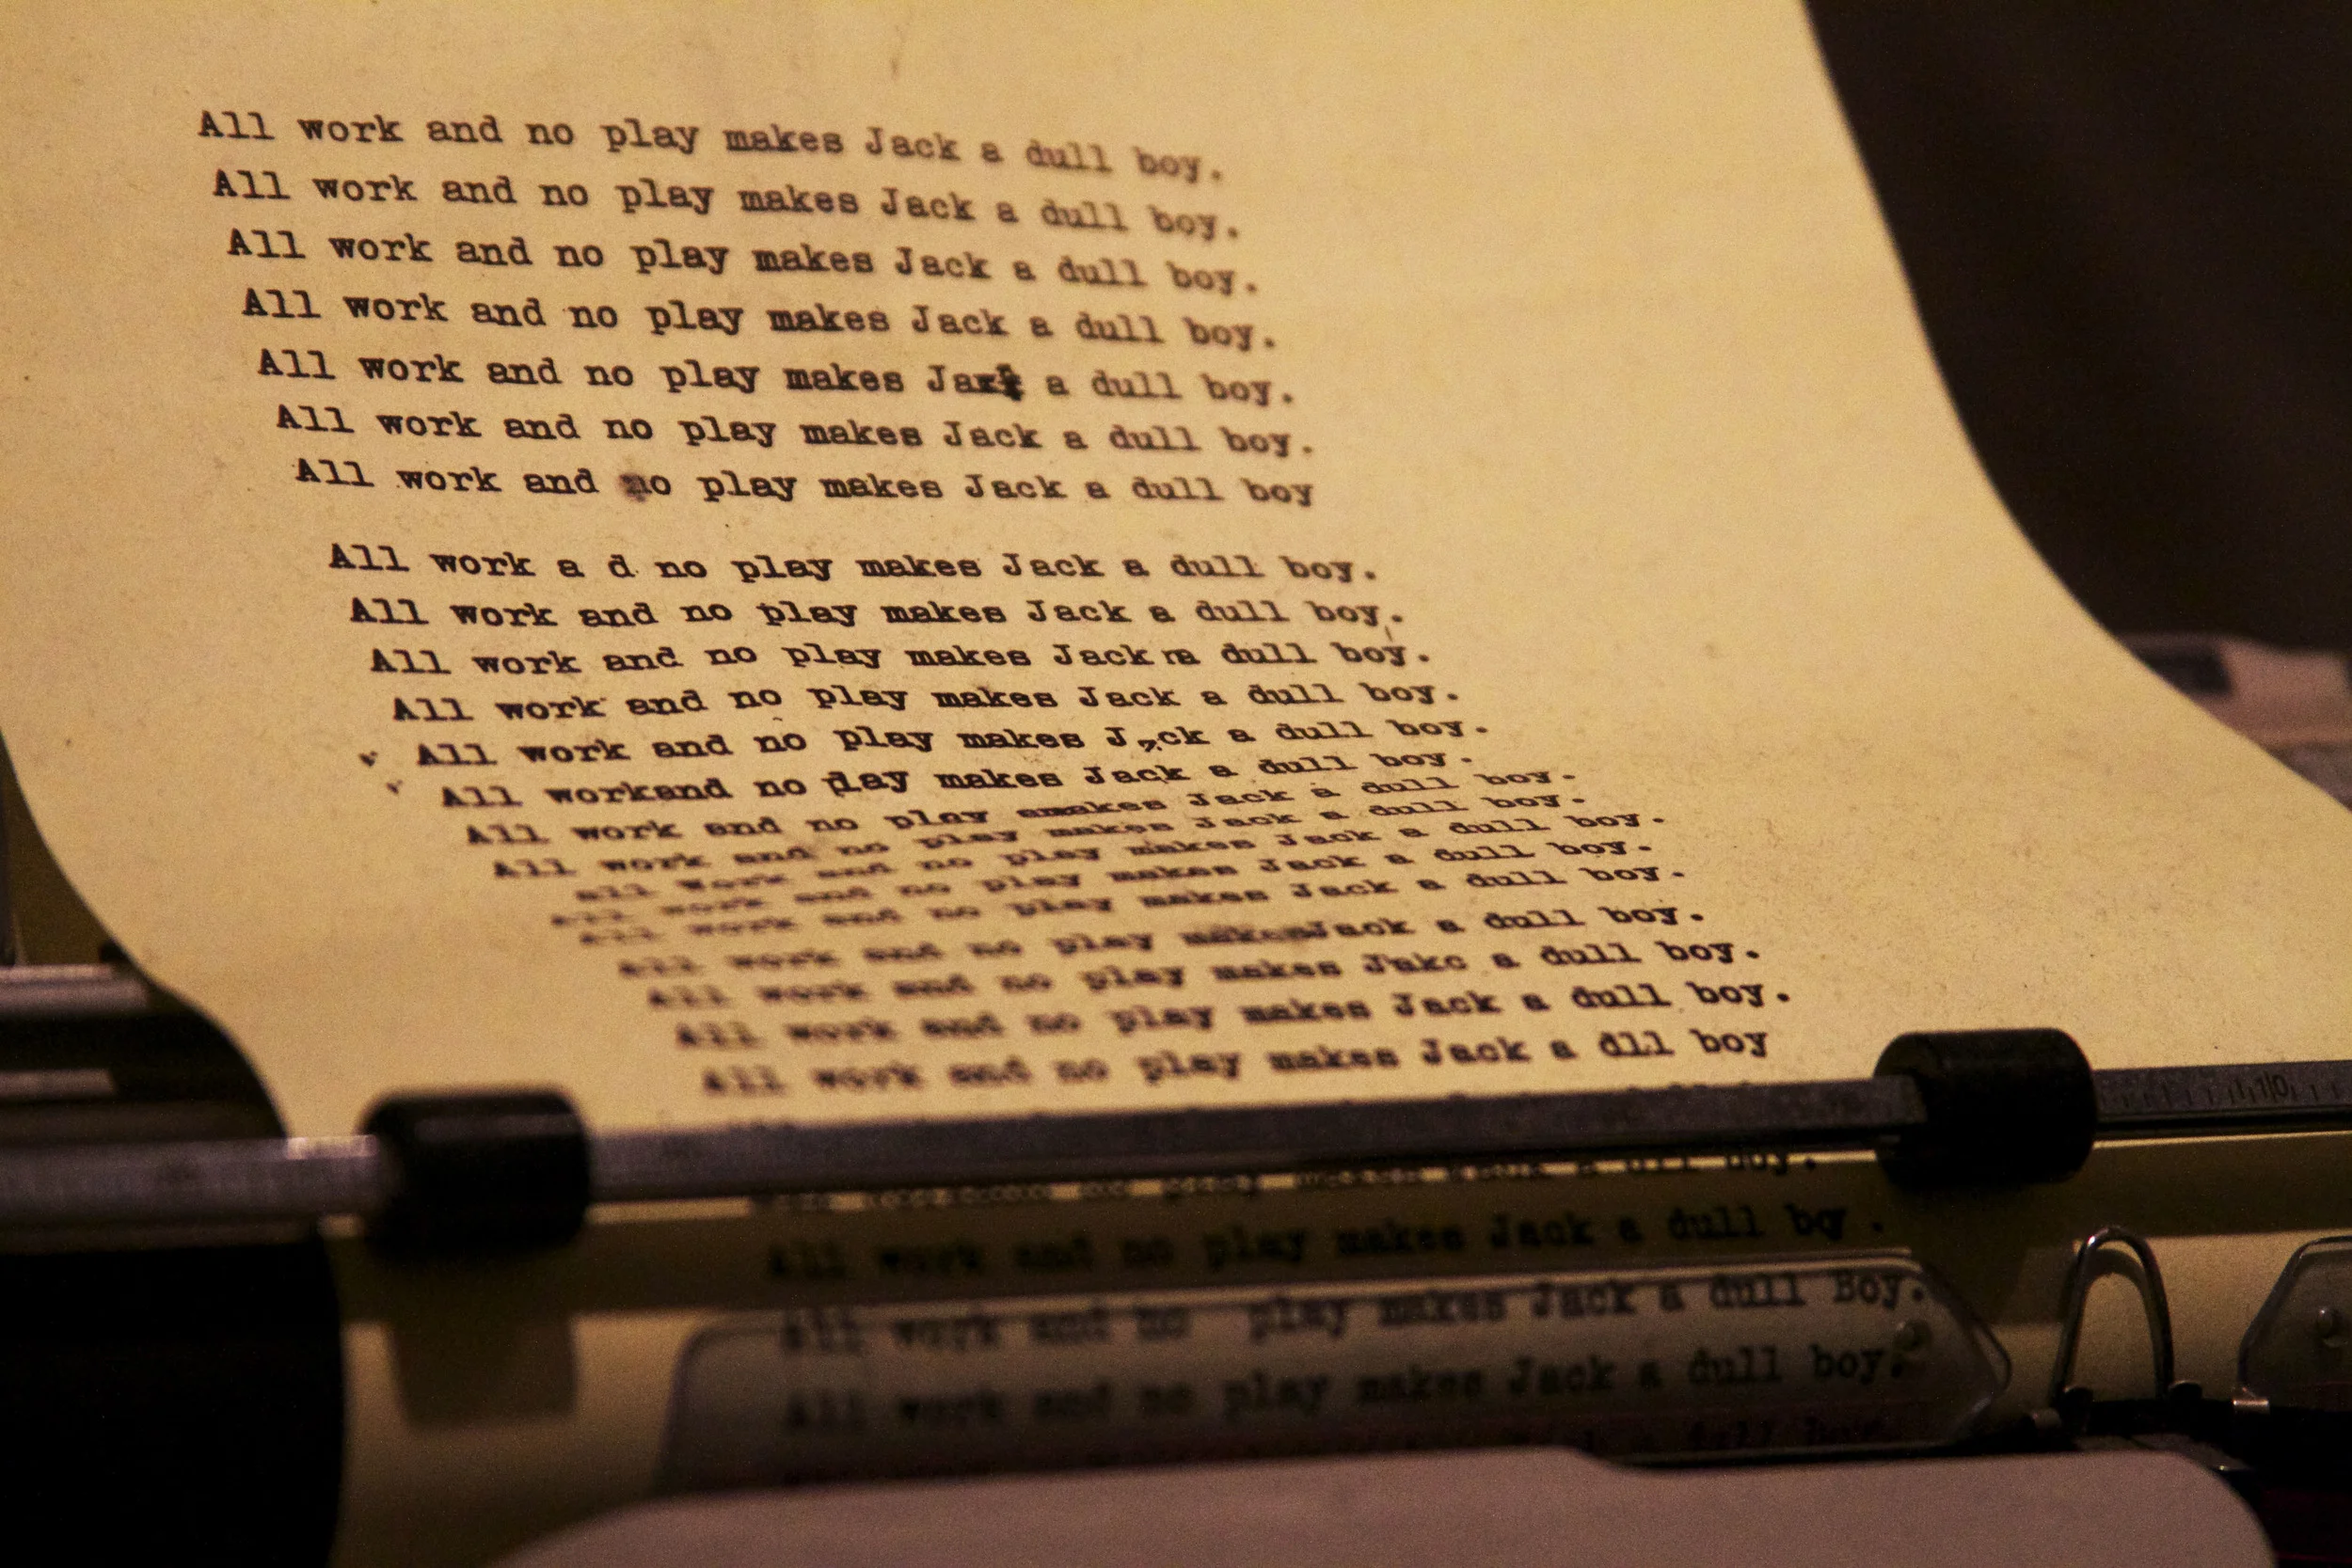 All work and no play makes Jack a dull boy.
All work and no play makes Jack a dull boy.
All work and no play makes Jack a dull boy.
All work and no play makes Jack a dull boy.
All work and no play makes a dull boy.
All work and no play makes Jack a dull boy.
All work and no play makes Jack a dull boy
All work a d no play makes Jack a dull boy.
All work and no play makes Jack a dull boy.
All work and no play makes Jack a dull boy.
All work and no play makes Jack a dull boy.
All work and no play makes J,,ck a dull boy.
All workand no play makes Jack a dull boy.
All work and no play amakes Jack a dull boy.
All work and no play makes Jack a dull boy.
all work and no play makes Jack a dull boy.
All work and no play makes Jack a dull boy.
All work and no play makes Jack a dull boy.
All work and no play makesJack a dull boy.
All work and no play makes Jakc a dull boy.
All work and no play makes Jack a dull boy.
All work and no play makes Jack a dll boy
play a dll boy.
All work and no play makes Jack a dull
All work and no play makes Jack a dull Boy.
All work and no play makes Jack a dull boy.
a dull
10